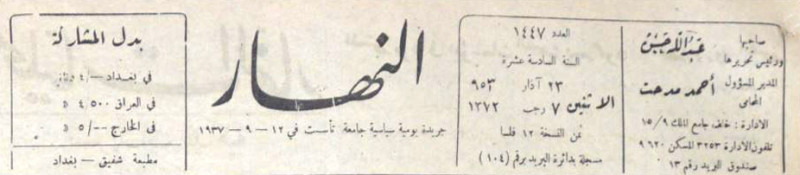 صاحبها
ورئيس تحريرها
عبد الله حسن
المدير المسؤول
المحامي
أحمد مدحت
الادارة : خلف جامع الملك ٩/١٥
تلفون الادارة ٣٢٥٣ المسكن ٩٦٢٠
صندوق البريد رقم ١٣
العدد ١٤٤٧
السنة السادسة عشرة
الاثنين
٢٣ آذار ٩٥٣
٧ رجب ١٣٧٢
ثمن النسخة ١٢ فلسا
مسجلة بدائرة البريد برقم (١٠٤)
النهار
جريدة يومية سياسية جامعة. تأسست في ١٢ - ٩ - ١٩٣٧
بدل المشاركة
في بغداد -/٤ دنانير
في العراق ٤٫٥٠٠ »
في الخارج --/٥ »
مطبعة شفيق - بغداد